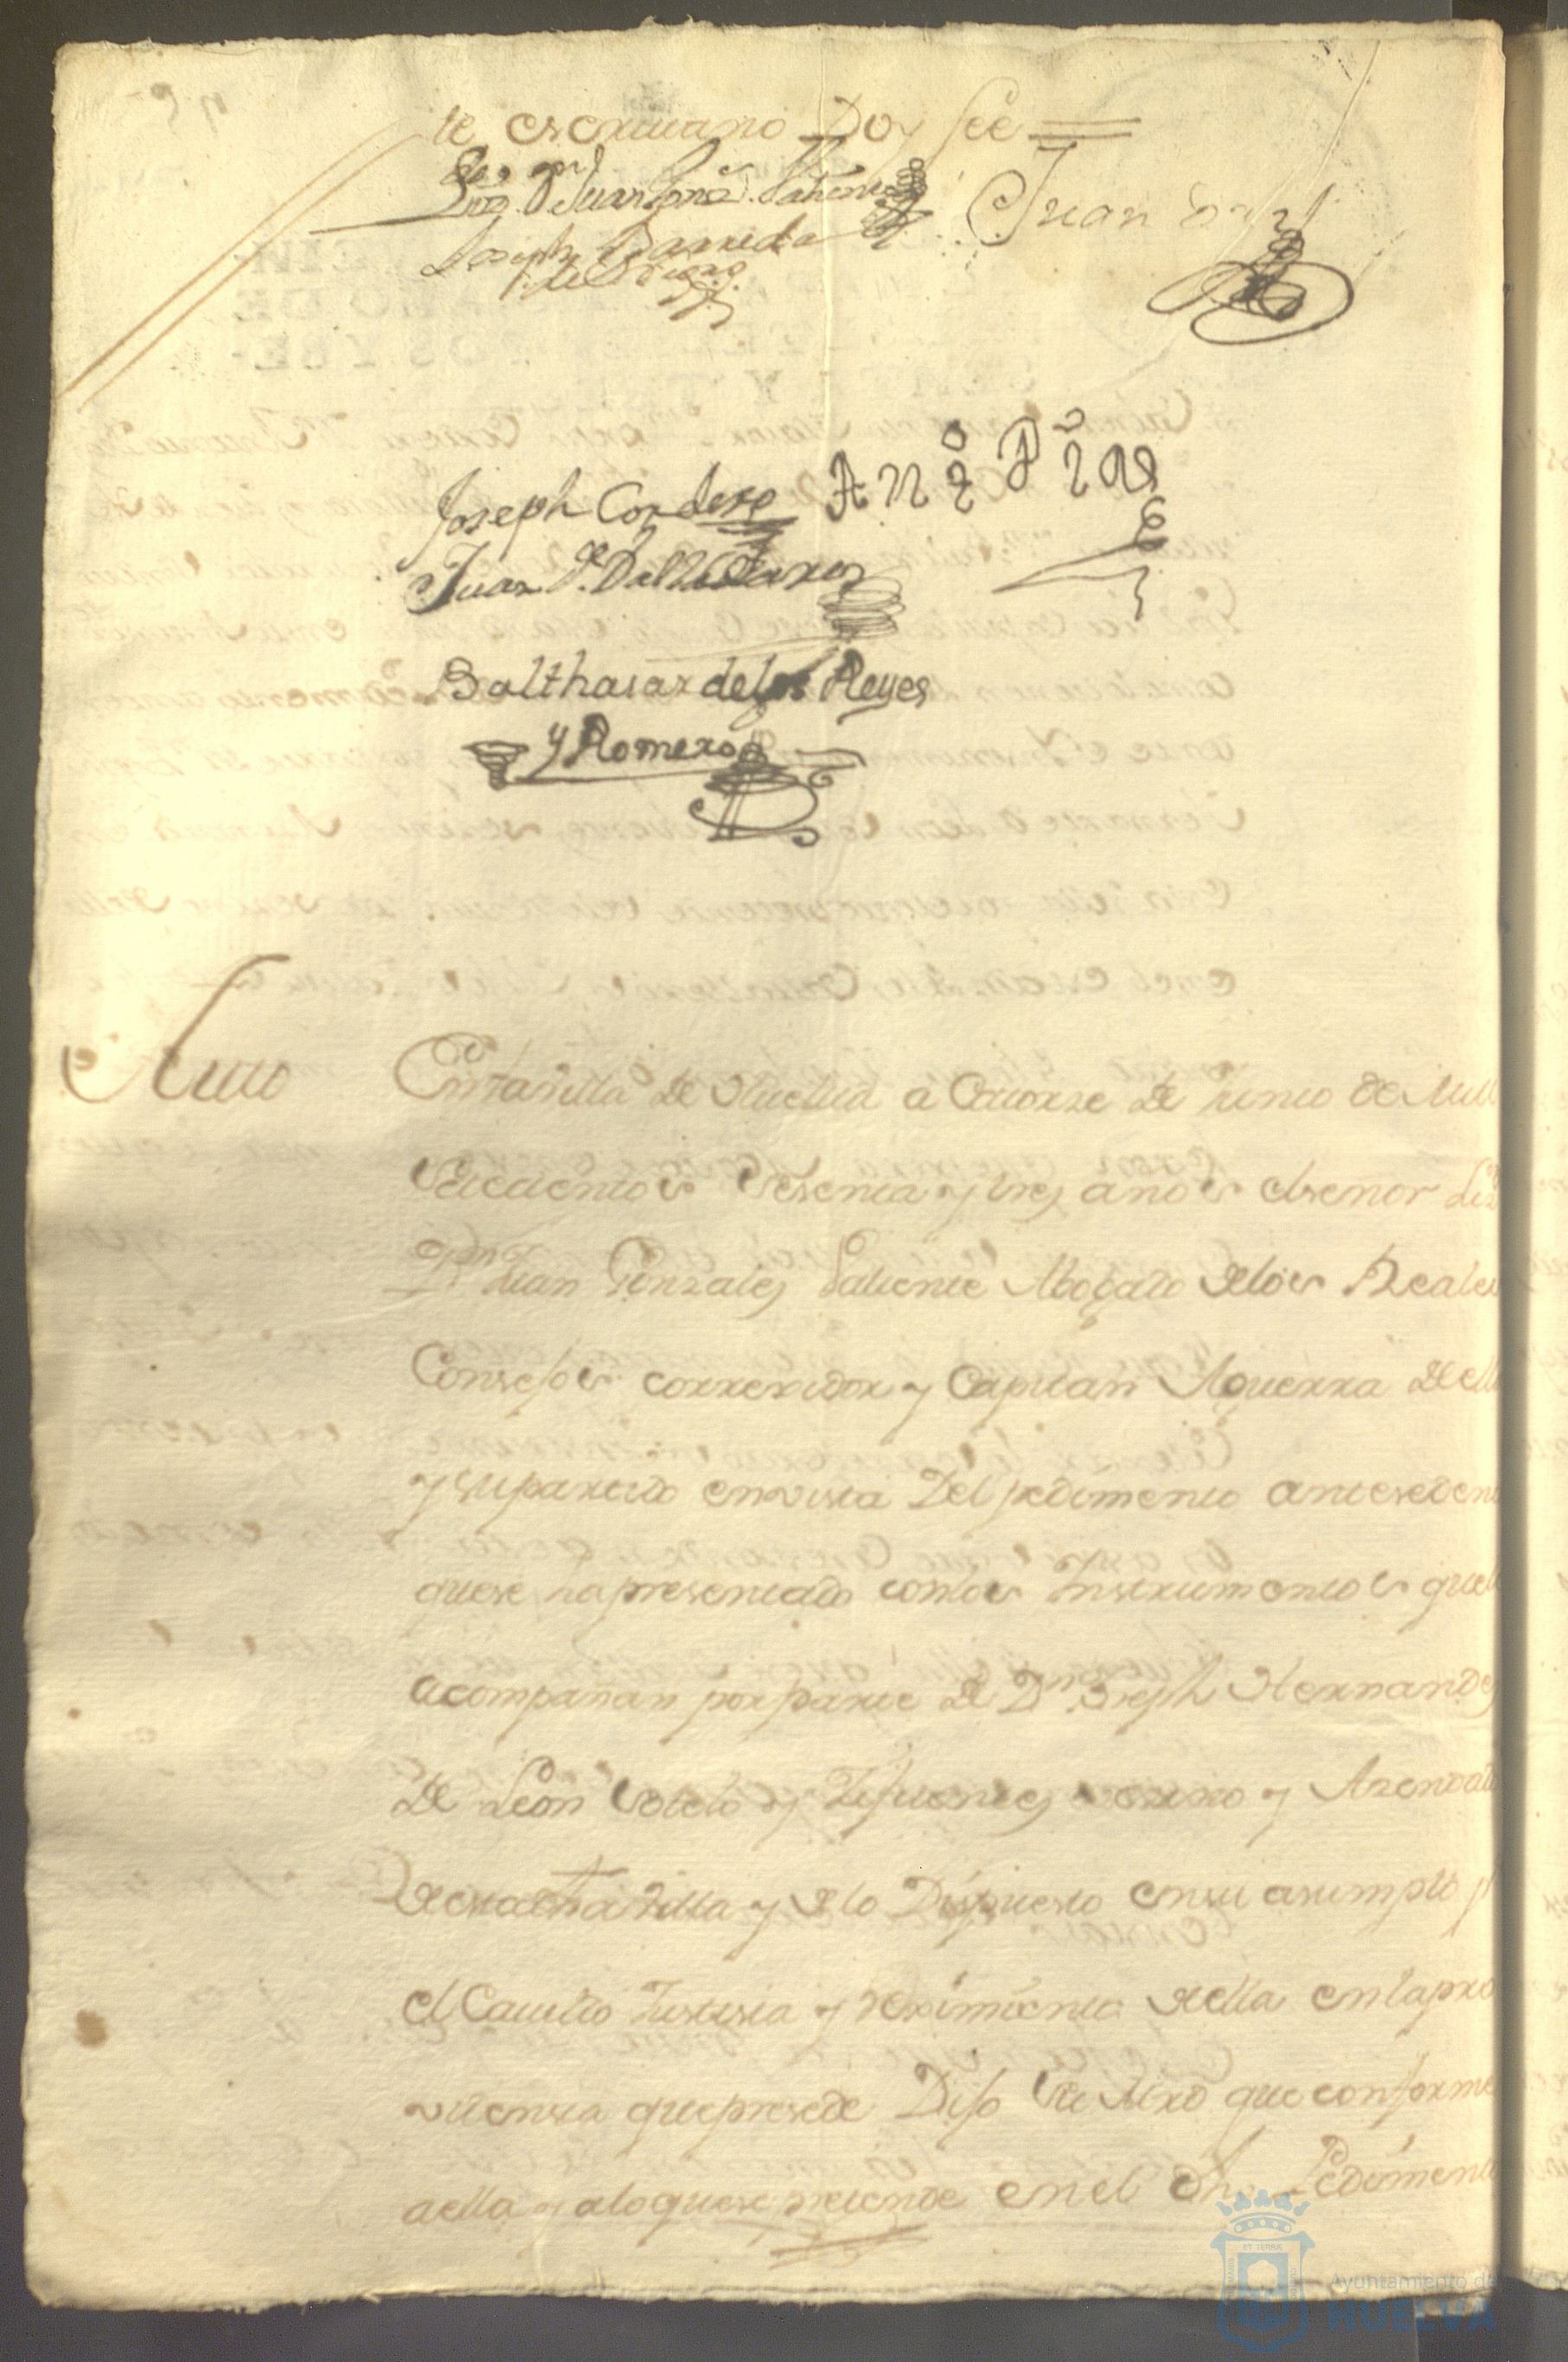 te escriuano Doy fee
Lizdo. Dn. Juan Gonz. Valiente
Juan
Joseph Barreda
Joseph Cordero
Antº Pº
Juan
Balthasar de los Reyes
y Romero
Auto
En la Villa de Huelua a Catorze de Junio de Mill
setecientos sesenta y tres años el señor Liz
Dn Juan Gonzales Valiente Abogado de los Reales
Consejos correxidor y Capitan Aguerra de ella
y su partido en vista Del pedimento antesedent
que se ha presentado con los Instrumentos que
acompañan por parte de Dn Joseph Hernandes
De Leon Sotelo y Zifuentes vezino y Azendad
de esta dha Villa y de lo Dispuesto en su asumpto p
el Cauildo Justisia y reximiento de ella en la pro
uidensia que presede Dijo su Mrd que conforme
a ella y a lo que se pretende en el dho Pedimento
Ayuntamiento de
HUELVA